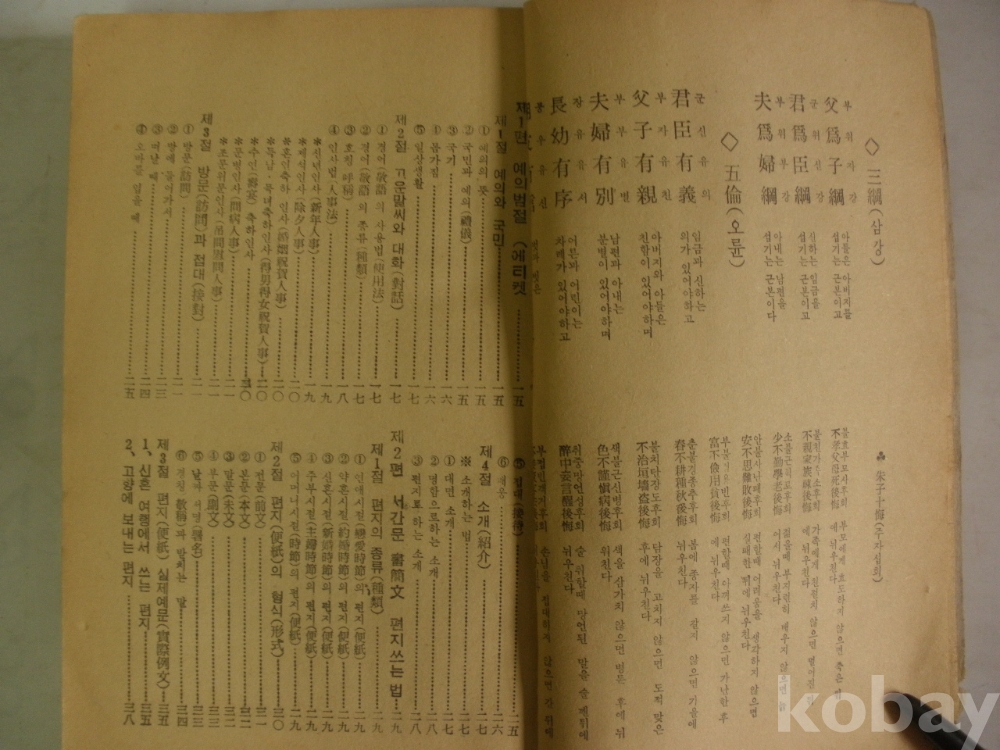 ◇三綱(삼강)
父爲子綱 부위자강 아들은 아버지를 섬기는 근본이고
君爲臣綱 군위신강 신하는 임금을 섬기는 근본이고
夫爲婦綱 부위부강 아내는 남편을 섬기는 근본이다
◇五倫(오륜)
君臣有義 군신유의 임금과 신하는 의가 있어야하고
父子有親 부자유친 아버지와 아들은 친함이 있어야하며
夫婦有別 부부유별 남편과 아내는 분별이 있어야하며
長幼有序 장유유서 어른과 어린이는 차례가 있어야하고
♣ 朱子十悔(주자십회)
불효부모사후회 부모에게 효도하지 않으면 죽은
不孝父母死後悔 에 뉘우친다
불친가족소후회 가족에게 친절치 않으면 멀어진
不親家族疎後悔 에 뉘우친다
소불근학노후회 젊을때 부지런히 배우지 않으면
少不勤學老後悔 어서 뉘우친다
안불사난패후회 편할때 어려움을 생각하지 않으면
安不思難敗後悔 실패한 뒤에 뉘우친다
부불검용빈후회 편할때 아껴쓰지 않으면 가난한 후
富不儉用貧後悔 에 뉘우친다
춘불경종추후회 봄에 종자를 갈지 않으면 가을에
春不耕種秋後悔 뉘우친다
불치탄장도후회 담장을 고치지 않으면 도적 맞은
不治垣墻盗後悔 후에 뉘우친다
색불근신병후회 색을 삼가치 않으면 병든 후에 뉘
色不謹愼病後悔 우친다
취중망언성후회 술 취할때 망언된 말을 술 깬뒤에
醉中妄言醒後悔 뉘우친다
손님을 접대하지 않으면 간 뒤에
제1편 예의범절 (에티켓 一五
제1절 예의와 국민 一五
① 예의의 뜻 一五
② 국민과 예의(禮儀) 一五
③ 국기 一六
④ 몸가짐 一六
⑤ 일상생활 一七
제2절 고운말씨와 대화(對話) 一七
① 경어(敬語)의 사용법(使用法) 一七
② 경어(敬語)의 종류(種類) 一七
③ 호칭(呼稱) 一八
④ 인사법(人事法) 一九
※제석인사(除夕人事) 一九
※신년인사(新年人事) 二〇
※혼인축하 인사(婚姻祝賀人事) 二〇
※득남·득녀축하인사(得男得女祝賀人事) 二〇
※수인(壽宴) 축하인사 二〇
※문병인사(問病人事) 二一
※조문위문인사(弔問慰問人事) 二一
제3절 방문(訪問)과 접대(接對) 二一
① 방문(訪問) 二一
② 방에 들어가서 二三
③ 떠날 때 二四
④ 오바를 입을 때 二五
⑥ 배웅
제4절 소개(紹介) 二七
※ 소개하는 법 二七
① 대면 소개 二七
② 명함으로하는 소개 二八
③ 편지로하는 소개 二八
제2편 서간문 書簡文 편지쓰는 법
제1절 편지의 종류(種類) 二九
① 연애시절(戀愛時節)의 편지(便紙) 二九
② 약혼시절(約婚時節)의 편지(便紙) 二九
③ 신혼시절(新婚時節)의 편지(便紙) 二九
④ 주부시절(主婦時節)의 편지(便紙) 二九
⑤ 어머니시절(時節)의 편지(便紙) 二九
제2절 편지(便紙)의 형식(形式) 三〇
① 전문(前文) 三一
② 본문(本文) 三二
③ 말문(末文) 三二
④ 부문(副文) 三三
⑤ 날자 서명(署名) 三三
⑥ 경칭(敬稱)과 받치는 말 三四
제3절 편지(便紙) 실제예문(實際例文) 三五
1、신혼 여행에서 쓰는 편지 三五
2、고향에 보내는 편지 三八
kobay